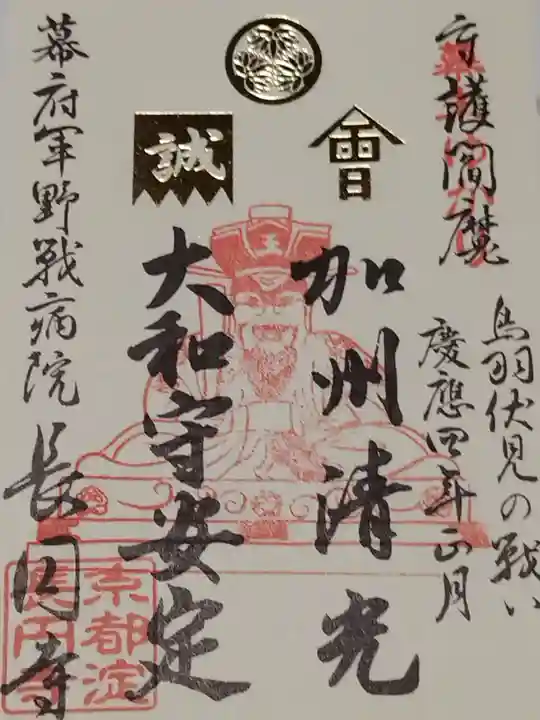 守護閻魔
鳥羽伏見の戦い
慶應四年正月
會
加州清光
誠
大和守安定
王
幕府軍野戦病院
長円寺
京都淀
長円寺